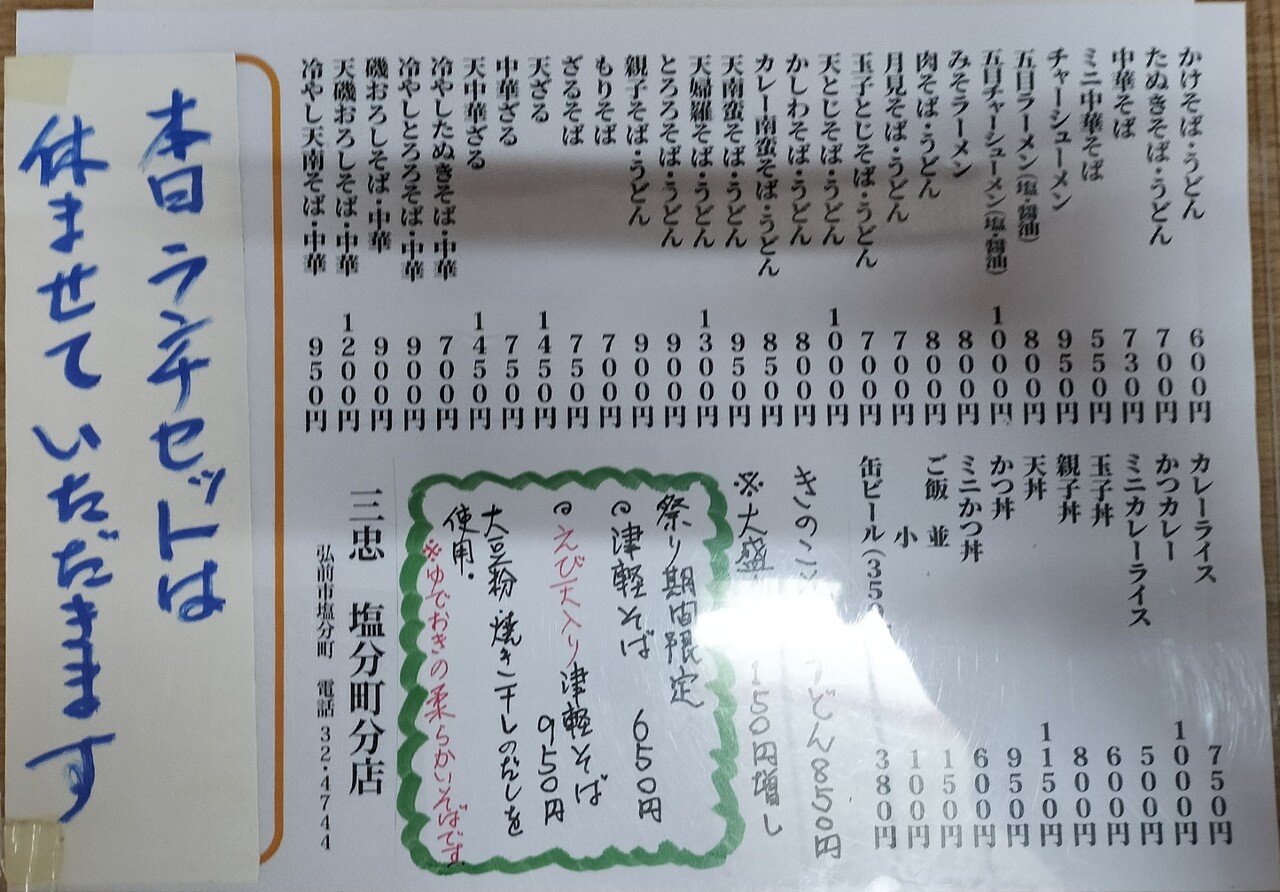 かけそば・うどん 600円
たぬきそば・うどん 700円
中華そば 730円
ミニ中華そば 550円
チャーシューメン 950円
五目ラーメン(塩・醤油) 800円
五目チャーシューメン(塩・醤油) 1000円
みそラーメン 800円
肉そば・うどん 800円
月見そば・うどん 700円
玉子とじそば・うどん 700円
天とじそば・うどん 1000円
かしわそば・うどん 800円
カレー南蛮そば・うどん 850円
天南蛮そば・うどん 950円
天婦羅そば・うどん 1300円
とろろそば・うどん 900円
親子そば・うどん 900円
もりそば 700円
ざるそば 750円
天ざる 1450円
中華ざる 750円
天中華ざる 1450円
冷やしたぬきそば・中華 700円
冷やしとろろそば・中華 900円
磯おろしそば・中華 900円
天磯おろしそば・中華 1200円
冷やし天南そば・中華 950円
カレーライス 750円
かつカレー 1000円
ミニカレーライス 500円
玉子丼 600円
親子丼 800円
天丼 1150円
かつ丼 950円
ミニかつ丼 600円
ご飯 並 150円
小 100円
缶ビール(350 380円
きのこ うどん850円
※大盛 150円増し
祭り期間限定
◎津軽そば 650円
◎えび天入り津軽そば 950円
大豆粉・焼き干しのだしを
使用。
※ゆでおきの柔らかいそばです。
三忠 塩分町分店
弘前市塩分町 電話 32・4744
本日ランチセットは
休ませていただきます